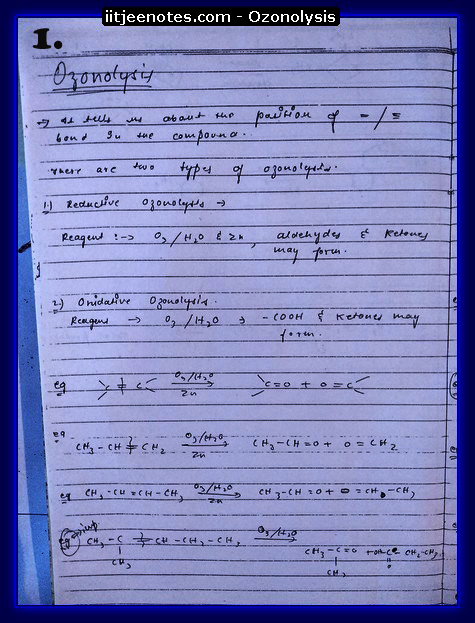 iitjeenotes.com - Ozonolysis
I.
Ozonolysis
→ It tells us about the position of = / ≡
bond in the compound.
There are two types of ozonolysis.
1.) Reductive Ozonolysis →
Reagent :-> O3/H2O & Zn, aldehydes & Ketones
may form.
2.) Oxidative Ozonolysis.
Reagent → O3/H2O → -COOH & Ketones may
form.
eg C=C O3/H2O Zn → C=O + O=C
eg CH3-CH=CH2 O3/H2O Zn → CH3-CH=O + O=CH2
eg CH3-CH=CH-CH3 O3/H2O Zn → CH3-CH=O + O=CH-CH3
eg imp CH3-C=CH-CH2-CH3 O3/H2O →
CH3-C=O + OH-C-CH2-CH3
CH3 CH3 O